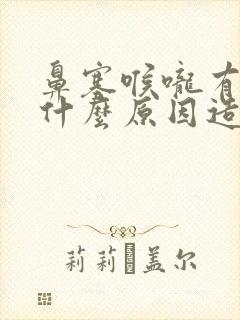 鼻塞喉嚨有
什麼原因造
莉莉 盖尔